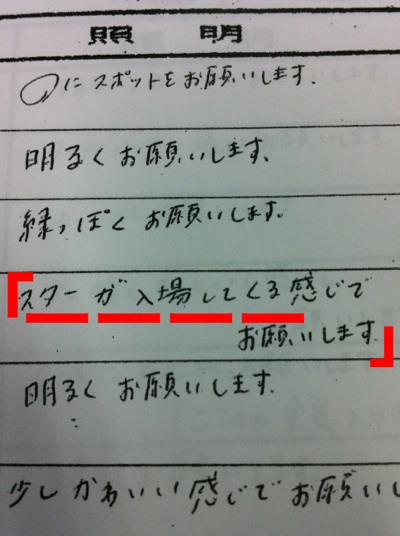 照明
○にスポットをお願いします.
明るくお願いします.
緑っぽくお願いします。
スターが入場してくる感じで
お願いします
明るくお願いします.
少しかわいい感じでお願いし